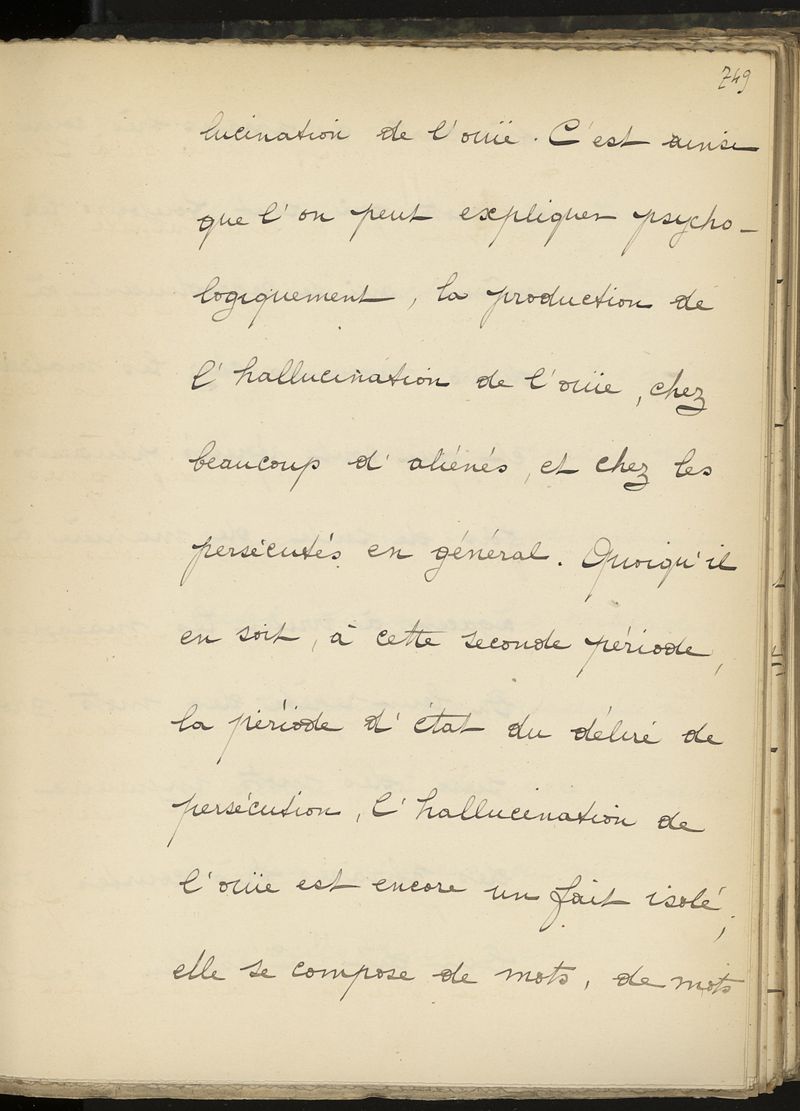 749
lucination de l'ouïe. C'est ainsi
que l'on peut expliquer psycho-
logiquement, la production de
l'hallucination de l'ouïe, chez
beaucoup d'aliénés, et chez les
persécutés en général. Quoiqu'il
en soit, à cette seconde période,
la période d'état du déliré de
persécution, l'hallucination de
l'ouïe est encore un fait isolé;
elle se compose de mots, de mots